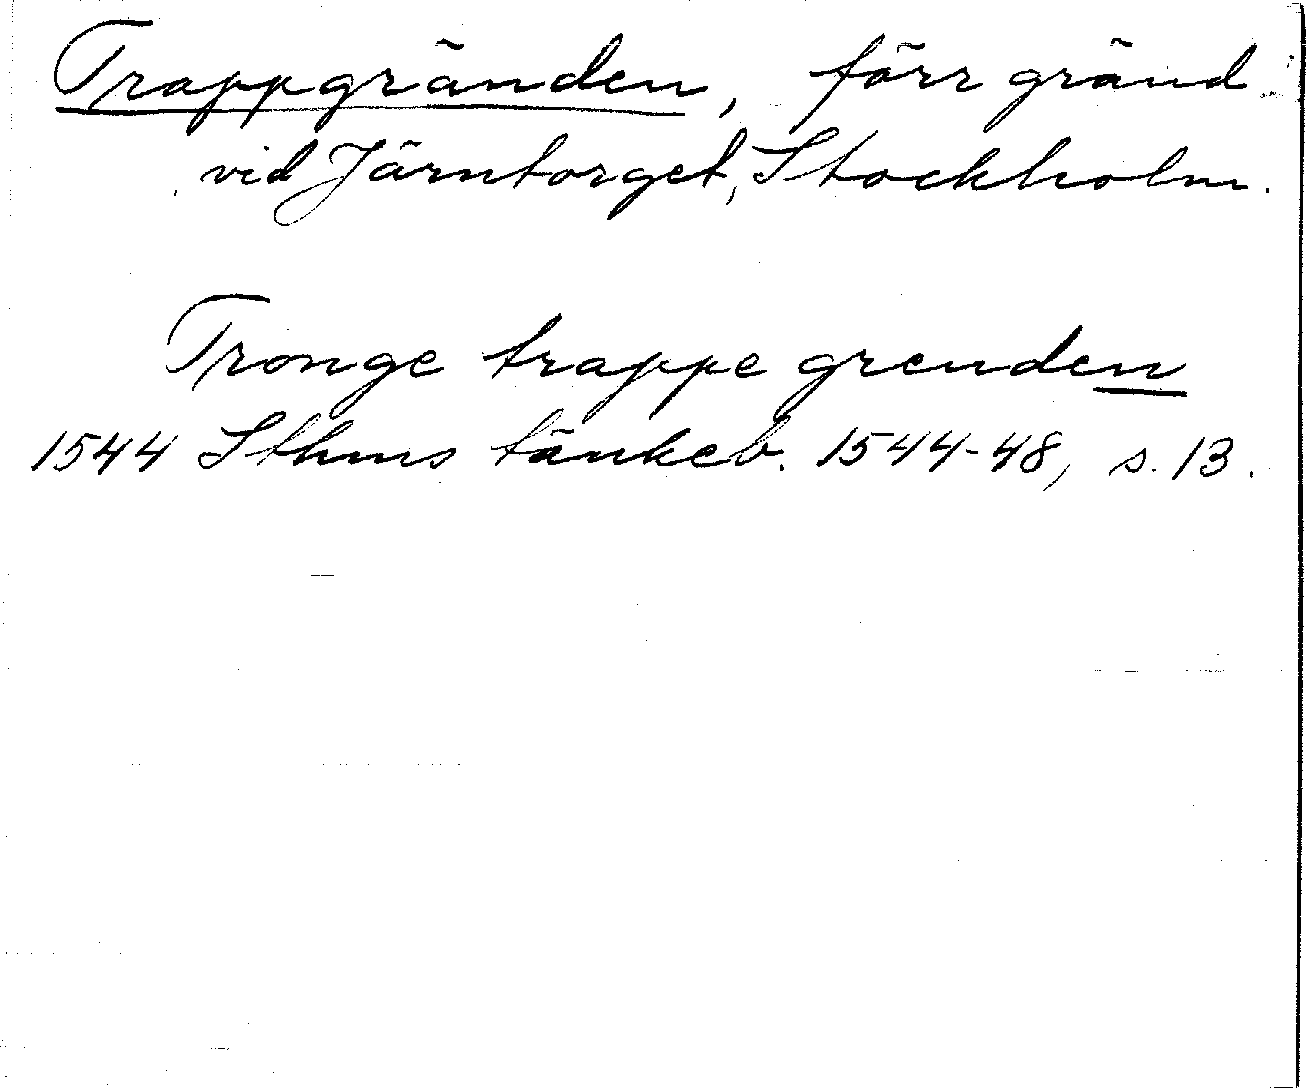 Trappgränden, förr gränd
vid Järntorget, Stockholm.
Tronge trappe grenden
1544 Sthms tänkeb. 1544-48, s. 13.